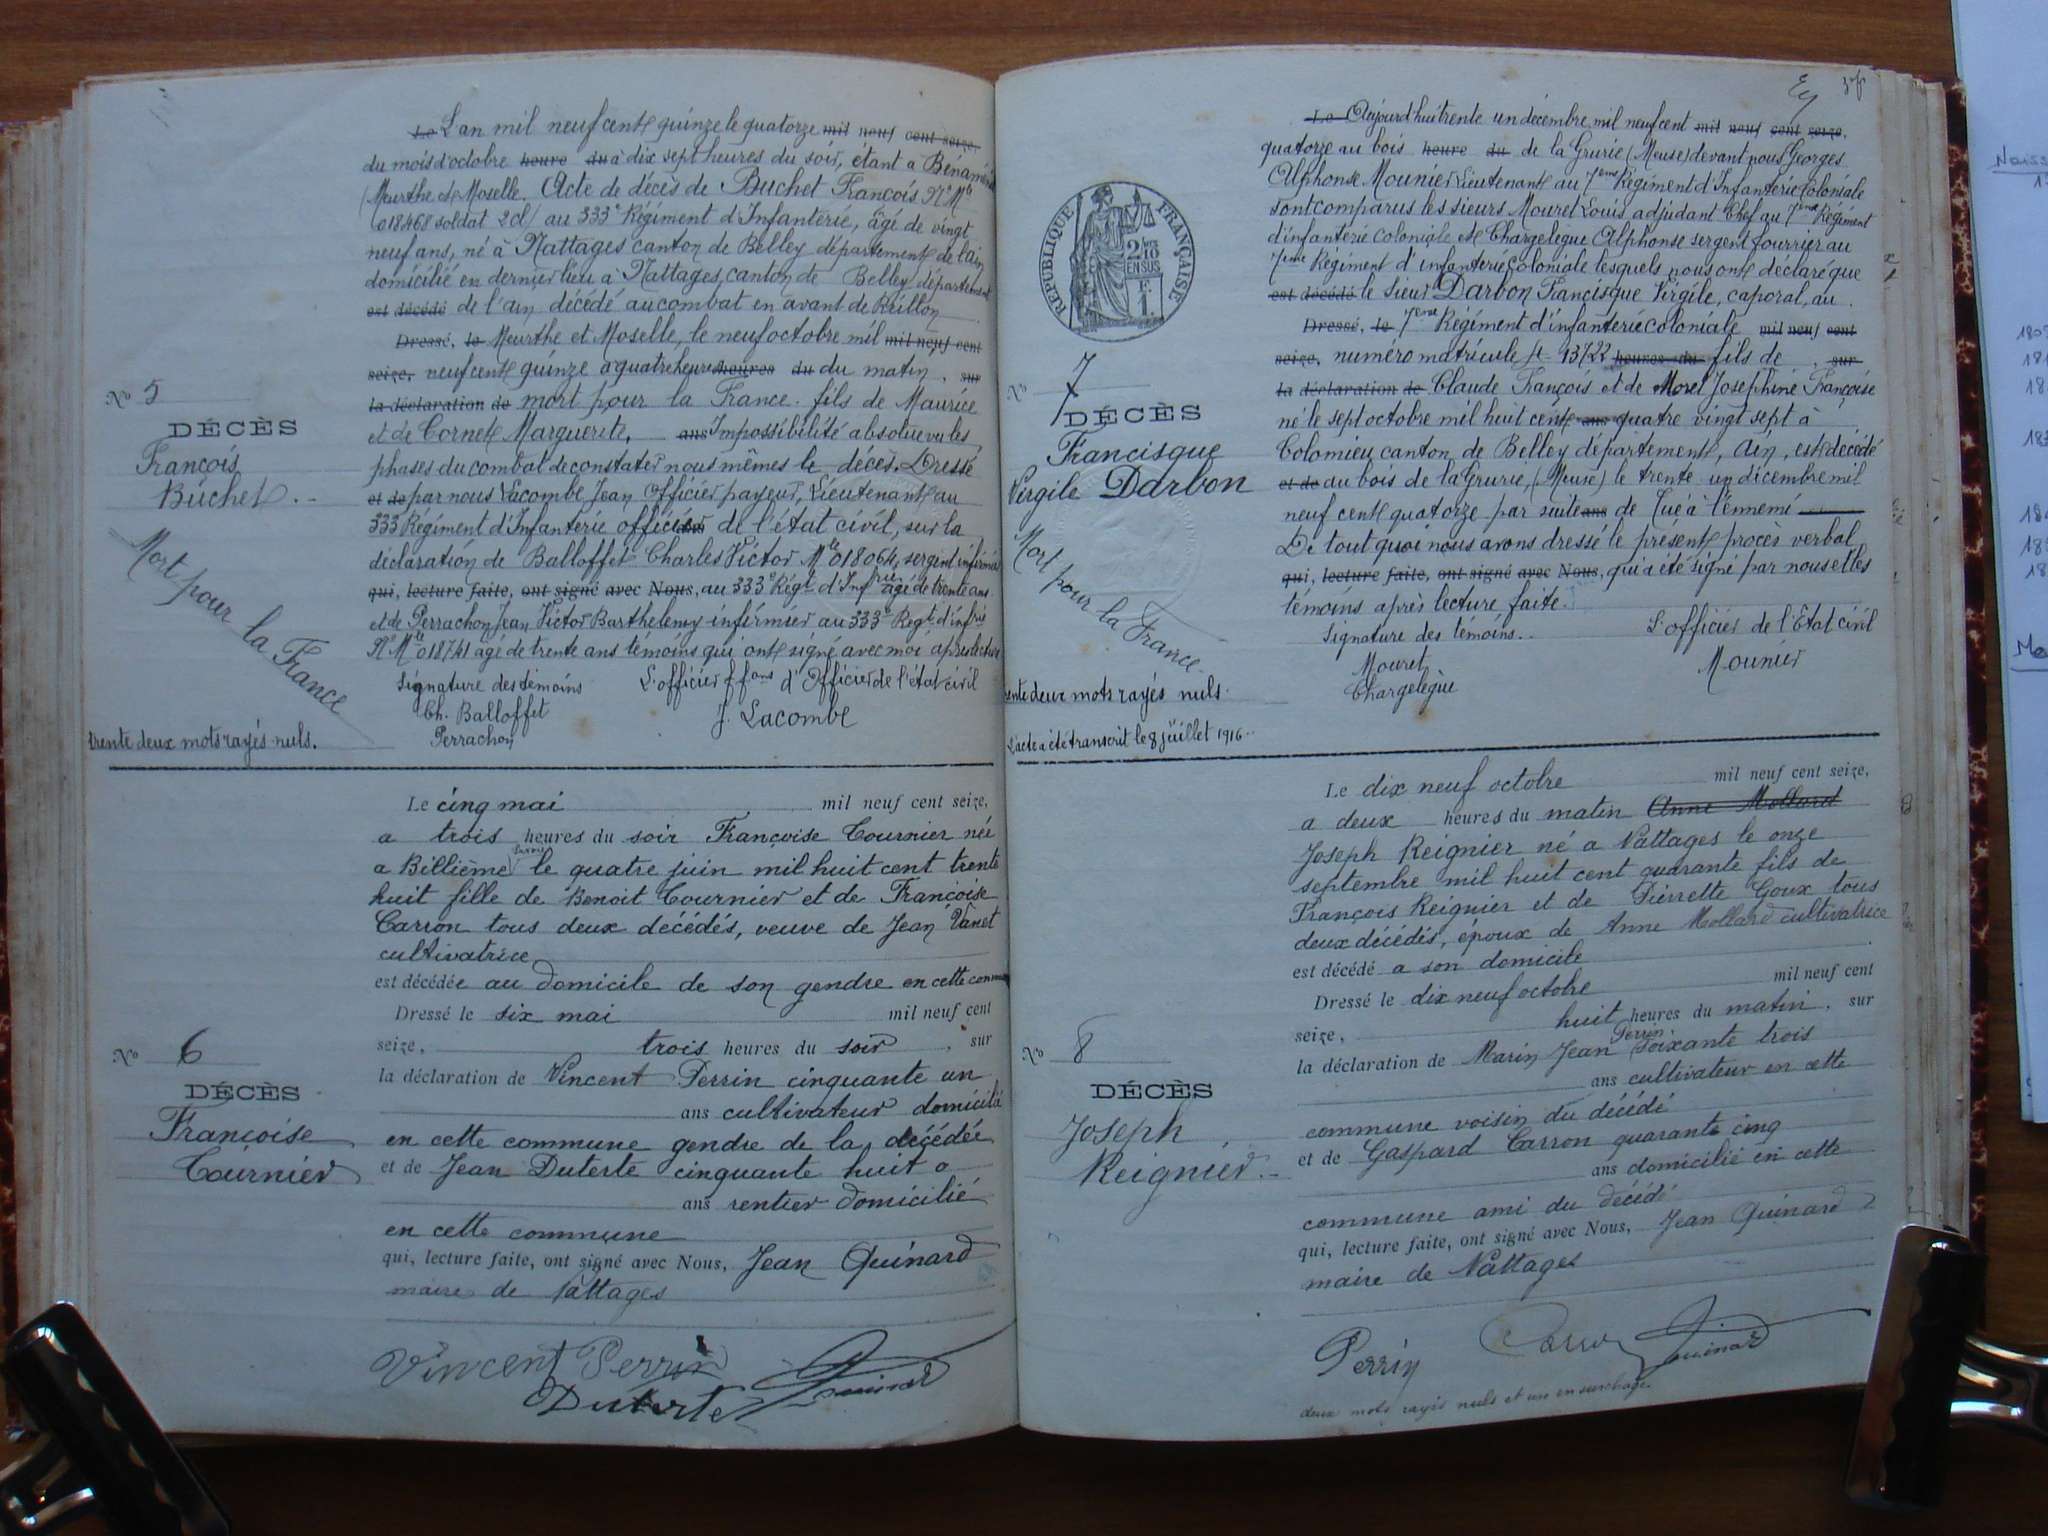 Le L'an mil neuf cent quinze le quatorze mil neuf cent seize,
du mois d'octobre heure du à dix sept heures du soir, étant à Bénaménil
(Meurthe et Moselle. Acte de décès de Buchet François Nº Mle
018468 soldat 2 cl/ au 333e Régiment d'Infanterie, âgé de vingt
neuf ans, né à Nattages canton de Belley département de l'Ain
domicilié en dernier lieu à Nattages, canton de Belley département
est décédé de l'ain décédé au combat en avant de Reillon
Dressé, le Meurthe et Moselle, le neuf octobre mil mil neuf cent
seize, neuf cent quinze à quatre heures heures du du matin, sur
la déclaration de mort pour la France. fils de Maurice
et de Cornet Marguerite, ans Impossibilité absolue vu les
phases du combat de constater nous mêmes le décès. Dressé
et de par nous Lacombe Jean Officier payeur, Lieutenant au
333 Régiment d'Infanterie officier de l'état civil, sur la
déclaration de Balloffet Charles Victor Mle 018064, sergent infirmier
qui, lecture faite, ont signé avec Nous, au 333e Régt d'Infrie âgé de trente ans
et de Perrachon Jean Victor Barthelemy infirmier au 333e Regt d'infrie
Nº Mle 018741 âgé de trente ans témoins qui ont signé avec moi après lecture
Signature des témoins L'officier ffons d'Officier de l'état civil
Ch. Balloffet J. Lacombe
Perrachon
No 5
DÉCÈS
François
Buchet.
Mort pour la France
trente deux mots rayés nuls.
Le cinq mai mil neuf cent seize,
a trois heures du soir Françoise Tournier née
a Billième Savoie le quatre juin mil huit cent trente
huit fille de Benoit Tournier et de Françoise
Carron tous deux décédés, veuve de Jean Vanet
cultivatrice
est décédée au domicile de son gendre en cette commune
Dressé le six mai mil neuf cent
seize, trois heures du soir, sur
la déclaration de Vincent Perrin cinquante un
ans cultivateur domicilié
en cette commune gendre de la décédée
et de Jean Duterte cinquante huit
ans rentier domicilié
en cette commune
qui, lecture faite, ont signé avec Nous, Jean Quinard
maire de Nattages
No 6
DÉCÈS
Françoise
Tournier
Vincent Perrin
Duterte Quinard
Le Aujourd'hui trente un décembre mil neuf cent mil neuf cent seize,
quatorze au bois heure du de la Grurie (Meuse) devant nous Georges
Alphonse Mounier Lieutenant au 7eme Régiment d'Infanterie Coloniale
sont comparus les sieurs Mouret Louis, adjudant Chef au 7eme Régiment
d'infanterie coloniale et Chargelègue Alphonse sergent fourrier au
7eme Régiment d'infanterie coloniale lesquels nous ont déclaré que
est décédé le sieur Darbon Francisque Virgile, caporal, au
Dressé, le 7eme Régiment d'infanterie coloniale mil neuf cent
seize, numéro matricule 13722 heures du fils de sur
la déclaration de Claude François et de Morel Josephine Françoise
né le sept octobre mil huit cent ans quatre vingt sept à
Colomieu canton de Belley département, Ain, est décédé
et de au bois de la Grurie, (Meuse) le trente un décembre mil
neuf cent quatorze par suite ans de Tué à l'ennemi
De tout quoi nous avons dressé le présent procès verbal
qui, lecture faite, ont signé avec Nous, qui a été signé par nous et les
témoins après lecture faite.
Signature des témoins.. L'officier de l'Etat civil
Mouret Mounier
Chargelègue
RÉPUBLIQUE FRANÇAISE
2/10
EN SUS
F.
1.
No 7
DÉCÈS
Francisque
Virgile Darbon
Mort pour la France
trente deux mots rayés nuls.
L'acte a été transcrit le 8 juillet 1916
Le dix neuf octobre mil neuf cent seize,
a deux heures du matin Anne Mollard
Joseph Reignier né a Nattages le onze
septembre mil huit cent quarante fils de
François Reignier et de Pierrette Goux tous
deux décédés, epoux de Anne Mollard cultivatrice
est décédé a son domicile
Dressé le dix neuf octobre mil neuf cent
seize, huit heures du matin, sur
la déclaration de Marin Jean Perrin soixante trois
ans cultivateur en cette
commune voisin du décédé
et de Gaspard Carron quarante cinq
ans domicilié en cette
commune ami du décédé
qui, lecture faite, ont signé avec Nous, Jean Quinard
maire de Nattages
No 8
DÉCÈS
Joseph
Reignier.
Perrin Carron Quinard
deux mots rayés nuls et un en surcharge